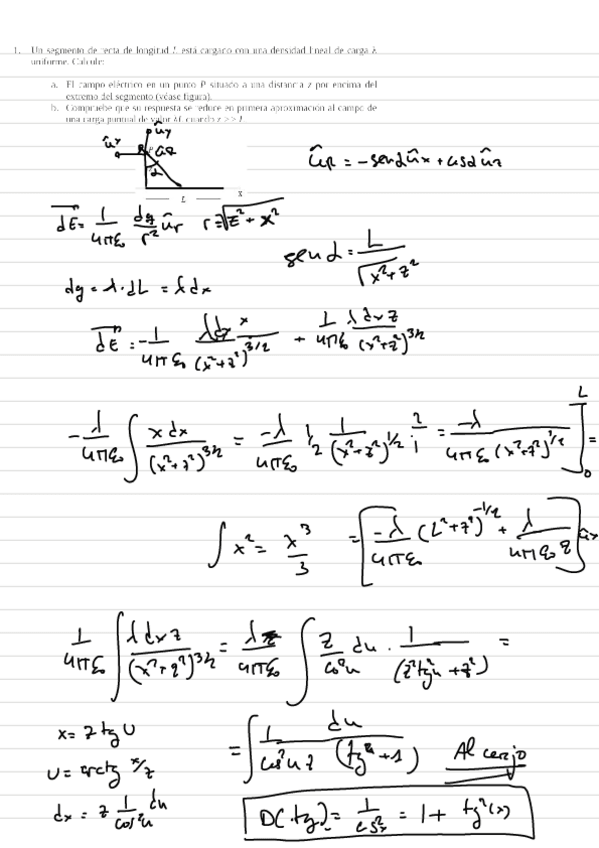 1. Un segmento de recta de longitud L está cargado con una densidad lineal de carga λ
uniforme. Calcule:
a. El campo eléctrico en un punto P situado a una distancia z por encima del
extremo del segmento (véase figura).
b. Compruebe que su respuesta se reduce en primera aproximación al campo de
una carga puntual de valor λL cuando z >> L
ûy
ûx
P
α
L x
ûr = -senα ûx + cosα ûz
dE = 1/4πε₀ dq/r² ûr r = √z² + x²
senα = L/√x²+z²
dq = λ·dL = λdx
dE = -1/4πε₀ λdx x/(x²+z²)^3/2 + 1/4πε₀ λdx z/(x²+z²)^3/2
-λ/4πε₀ ∫ x dx/(x²+z²)^3/2 = -λ/4πε₀ 1/2 1/(x²+z²)^1/2 2/1 = -λ/4πε₀ (x²+z²)^1/2 ]₀^L =
∫x² = x³/3 = [-λ/4πε₀ (L²+z²)^-1/2 + λ/4πε₀ z] ûx
1/4πε₀ ∫ λdx z/(x²+z²)^3/2 = λz/4πε₀ ∫ z/cos²u du · 1/(z²tg²u + z²) =
x = z tg u
= ∫ 1/cos²u z du/(tg²u+1) Al carajo
u = arctg x/z
dx = z 1/cos²u du
D(tg) = 1/cos²x = 1 + tg²(x)